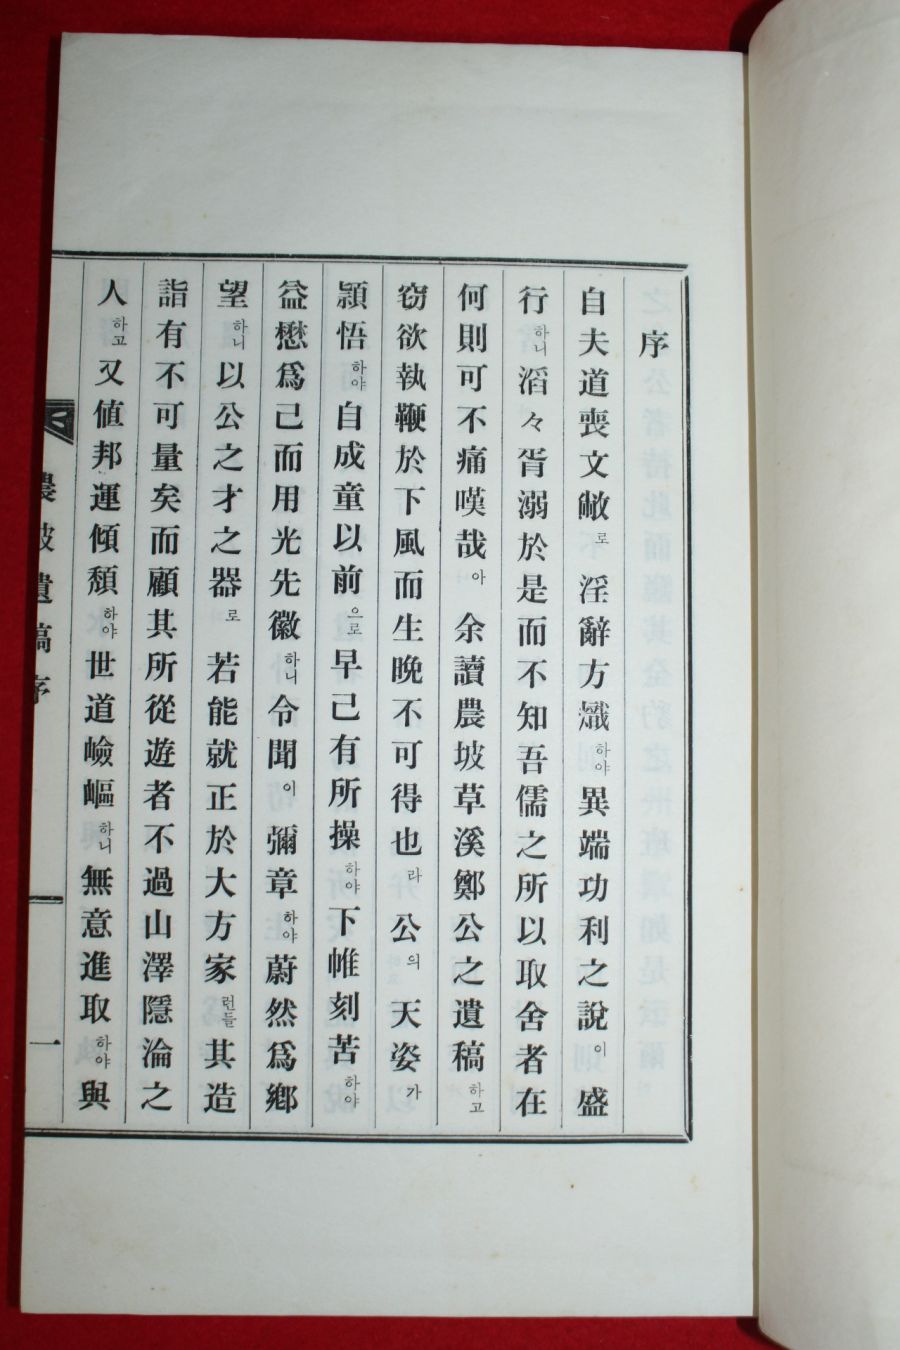 序
自夫道喪文敝로淫辭方熾하야異端功利之說이盛
行하니滔々胥溺於是而不知吾儒之所以取舍者在
何則可不痛嘆哉아余讀農坡草溪鄭公之遺稿하고
窃欲執鞭於下風而生晩不可得也라公의天姿가
顈悟하야自成童以前으로早己有所操하야下帷刻苦하야
益懋爲己而用光先徽하니令聞이彌章하야蔚然爲鄕
望하니以公之才之器로若能就正於大方家런들其造
詣有不可量矣而顧其所從遊者不過山澤隱淪之
人하고又値邦運傾頹하야世道嶮嶇하니無意進取하야與
農坡遺稿序
一